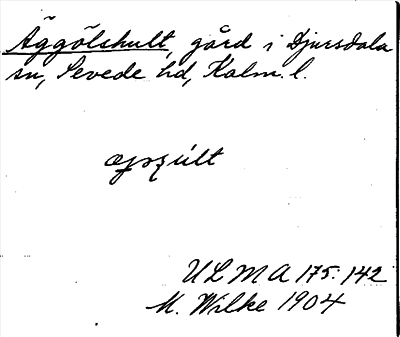 Äggölshult, gård i Djursdala
sn, Sevede hd, Kalm. l.
ULMA 175:142
M. Wilke 1904